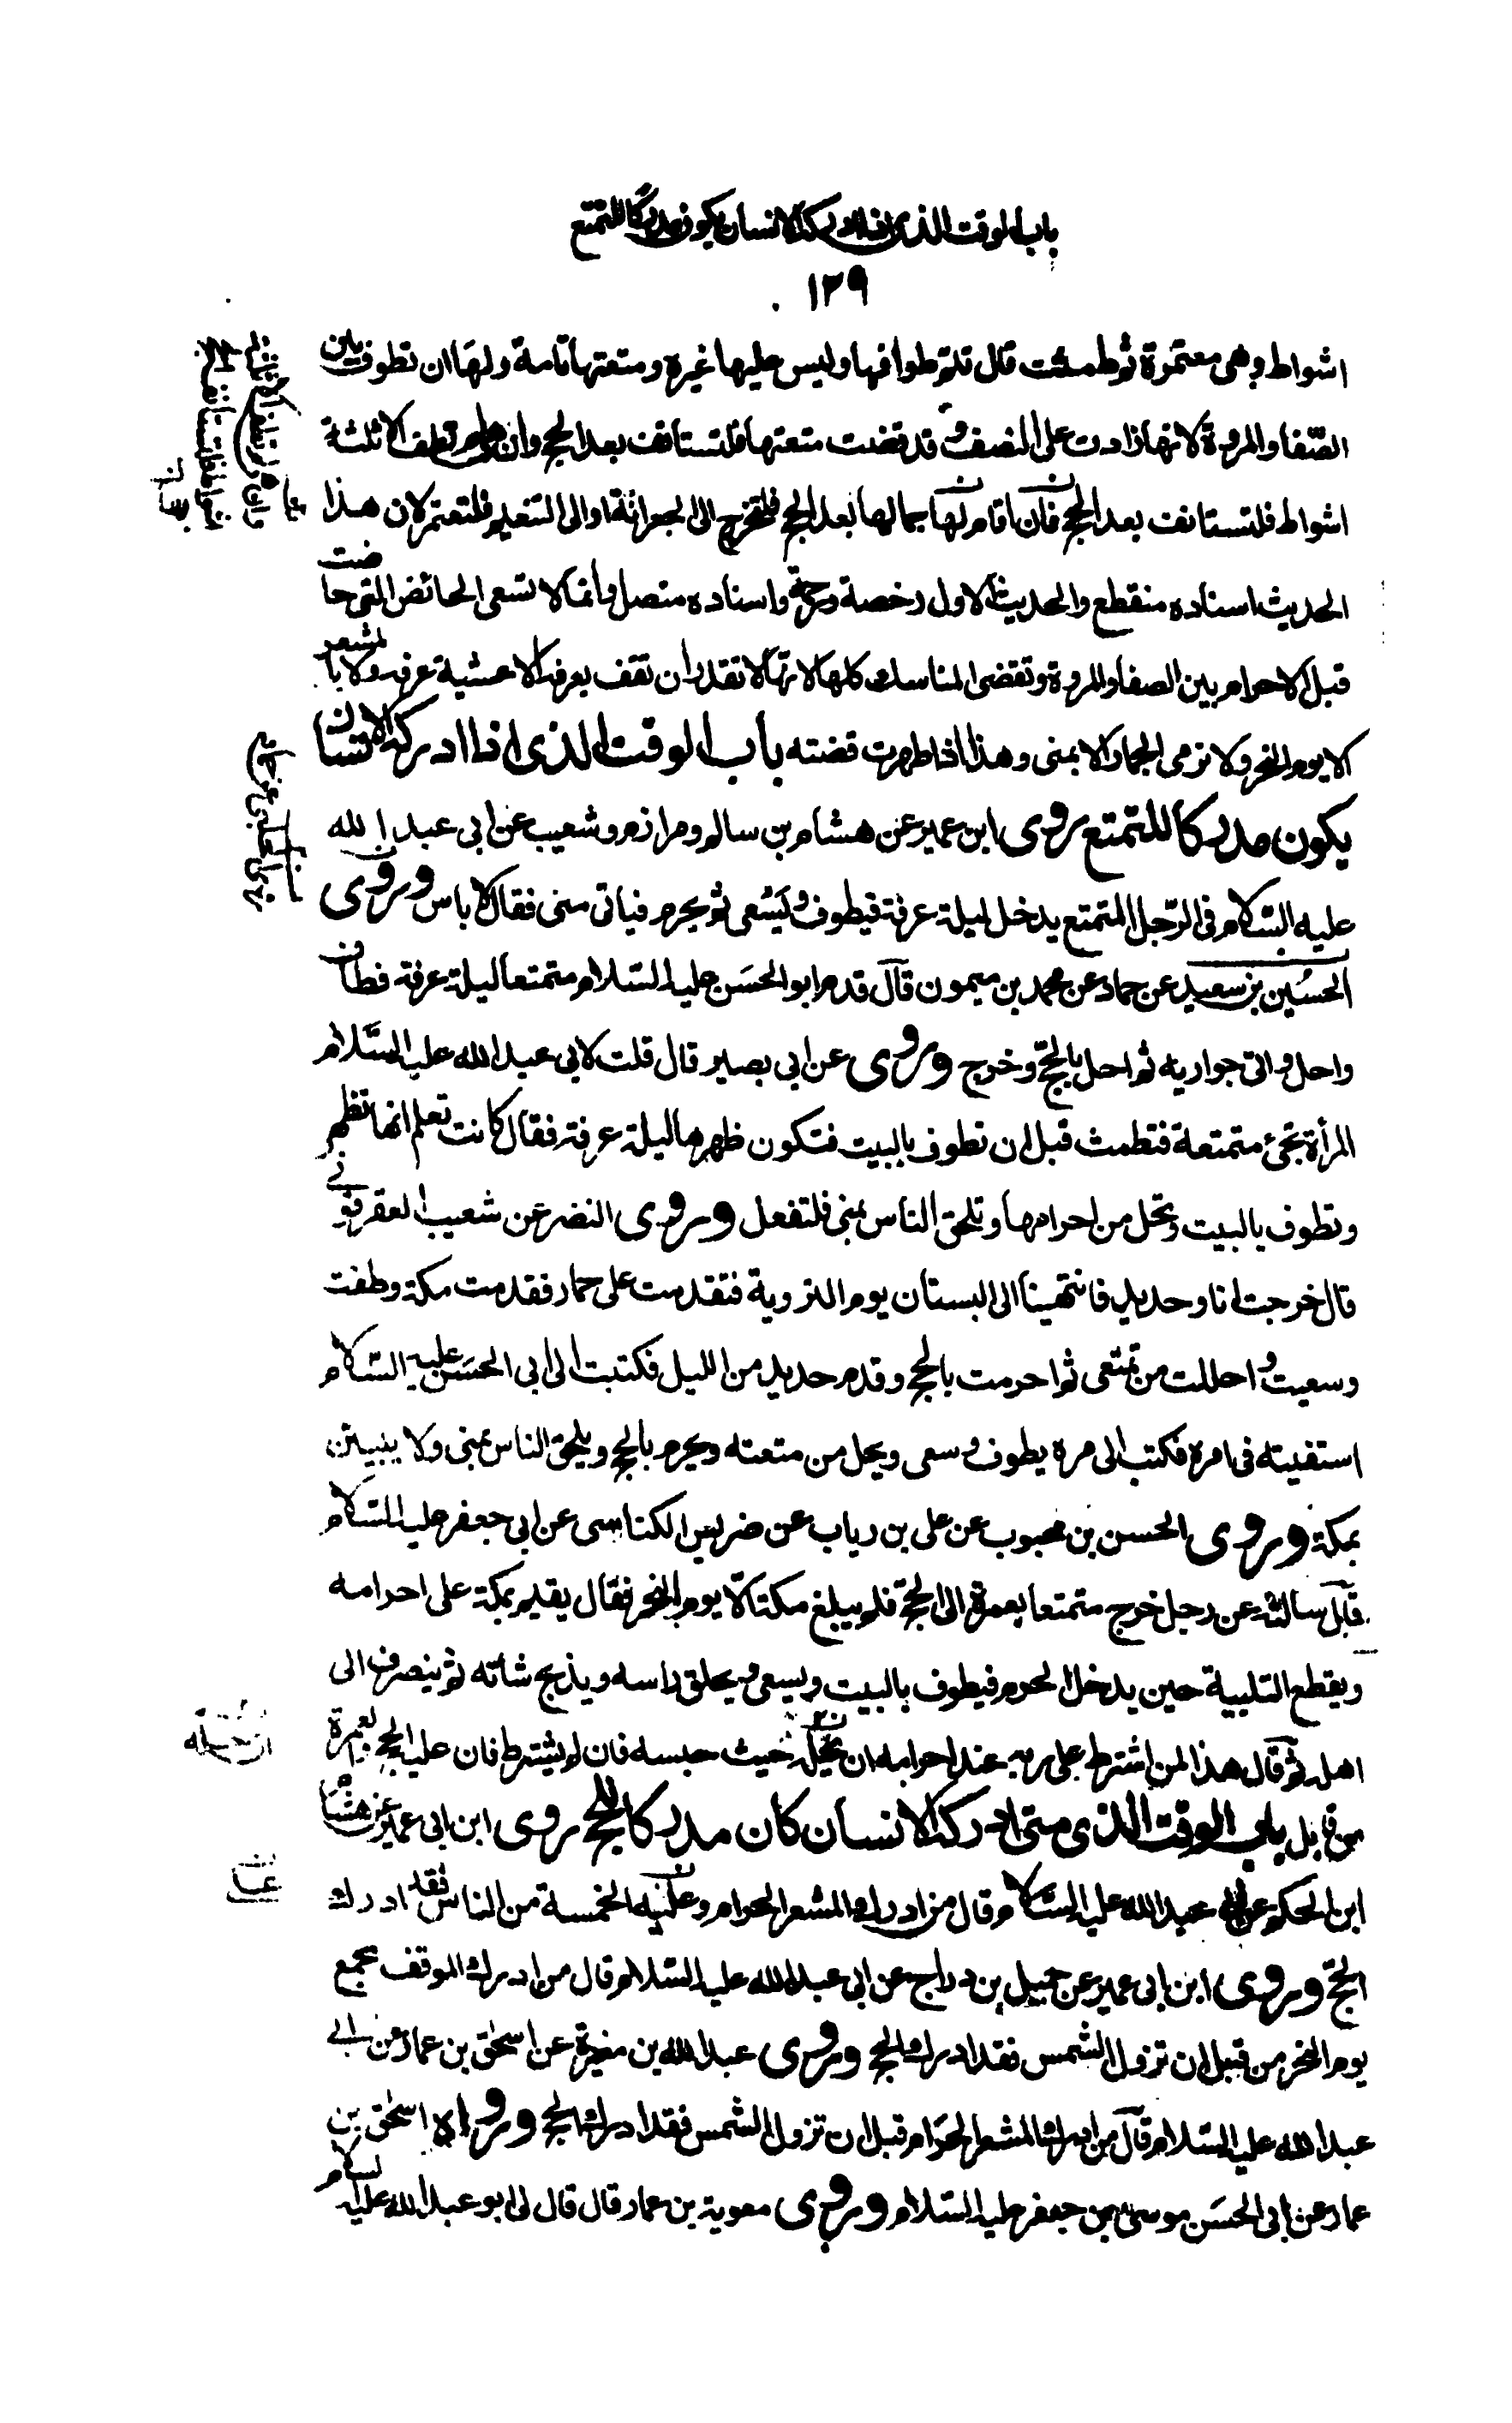 باب الوقت الذى اذا ادركه الانسان يكون مدركا للتمتع
١٢٩
اشواط وهى معتمرة ثم طمثت قال تتم طوافها وليس عليها غيره ومتعتها تامة ولها ان تطوف بين
الصّفا والمروة لانها زادت على النصف و قد قضت متعتها فلتستانف بعد الحج وان هى لم تطف الا ثلثة
اشواط فلتستانف بعد الحج فان اقام لها جمالها بعد الحج فلتخرج الى الجعرانة او الى التنعيم فلتعتمر لان هذا
الحديث اسناده منقطع والحديث الاول رخصة ورحمة واسناده متصل وانما لا تسعى الحائض التى حاضت
قبل الاحرام بين الصفا والمروة وتقضى المناسك كلها لانها لا تقدر ان تقف بعرفة الا عشية عرفه ولا بالمشعر
الا يوم النحر ولا ترمى الجمار الا بمنى وهذا اذا طهرت قضته باب الوقت الذى اذا ادركه الانسان
يكون مدركا للتمتع روى ابن عمير عن هشام بن سالم ومرازم وشعيب عن ابى عبد الله
عليه السّلام فى الرّجل المتمتع يدخل ليلة عرفة فيطوف و يَسْعى ثم يحرم فياتى منى فقال لا باس وروى
الحسين بن سعيد عن حماد عن محمد بن ميمون قال قدم ابو الحسَن عليه السّلام متمتعا ليلة عرفة فطاف
واحل و اتى جواريه ثم احل بالحجّ وخرج وروى عن ابى بصير قال قلت لابى عبد الله عليه السَّلام
المرأة تجئ متمتعة فتطمث قبل ان تطوف بالبيت فتكون طهرها ليلة عرفة فقال ان كانت تعلم انها تطهر
وتطوف بالبيت وتحل من احرامها وتلحق الناس بمنى فلتفعل وروى النضر عن شعيب العقرقوفى
قال خرجت انا وحديد فانتهينا الى البستان يوم التروية فتقدمت على حمار فقدمت مكة وطفت
وسعيت و احللت من تمتعى ثم احرمت بالحج وقدم حديد من الليل فكتبت الى ابى الحسَن عليه السّلام
استفتيته فى امره فكتب الى مره يطوف و سعى ويحل من متعته ويحرم بالحج ويلحق الناس بمنى ولا يبيتن
بمكة وروى الحسن بن محبوب عن على بن رياب عن ضريس الكناسى عن ابى جعفر عليه السّلام
قال سالته عن رجل خرج متمتعا بعمرة الى الحجّ فلم يبلغ مكة الّا يوم النحر فقال يقيم بمكة على احرامه
ويقطع التلبية حين يدخل الحرم فيطوف بالبيت ويسعى و يحلق راسه ويذبح شاته ثم ينصرف الى
اهله ثم قال هذا لمن اشترط على ربه عند احرامه ان يحلّه حيث حبسه فان لم يشترط فان عليه الحج لعمرة
من قابل باب الوقت الذى متى ادركه الانسان كان مدركا للحج روى ابن ابى عمير عن هشام
ابن الحكم عن ابى عبد الله عليه السّلام قال من ادرك المشعر الحرام وعليه الخمسة من الناس فقد ادرك
الحجّ وروى ابن ابى عمير عن جميل بن دراج عن ابى عبد الله عليه السّلام قال من ادرك الموقف بجمع
يوم النحر من قبل ان تزول الشمس فقد ادرك الحج وروى عبد الله بن مغيرة عن اسحق بن عمار عن ابى
عبد الله عليه السّلام قال من ادرك المشعر الحرَام قبل ان تزول الشمس فقد ادرك الحج ورواه اسحق بن
عمار عن ابى الحسَن موسى بن جعفر عليه السّلام وروى معوية بن عمار قال قال لى ابو عبد الله عليه السلام